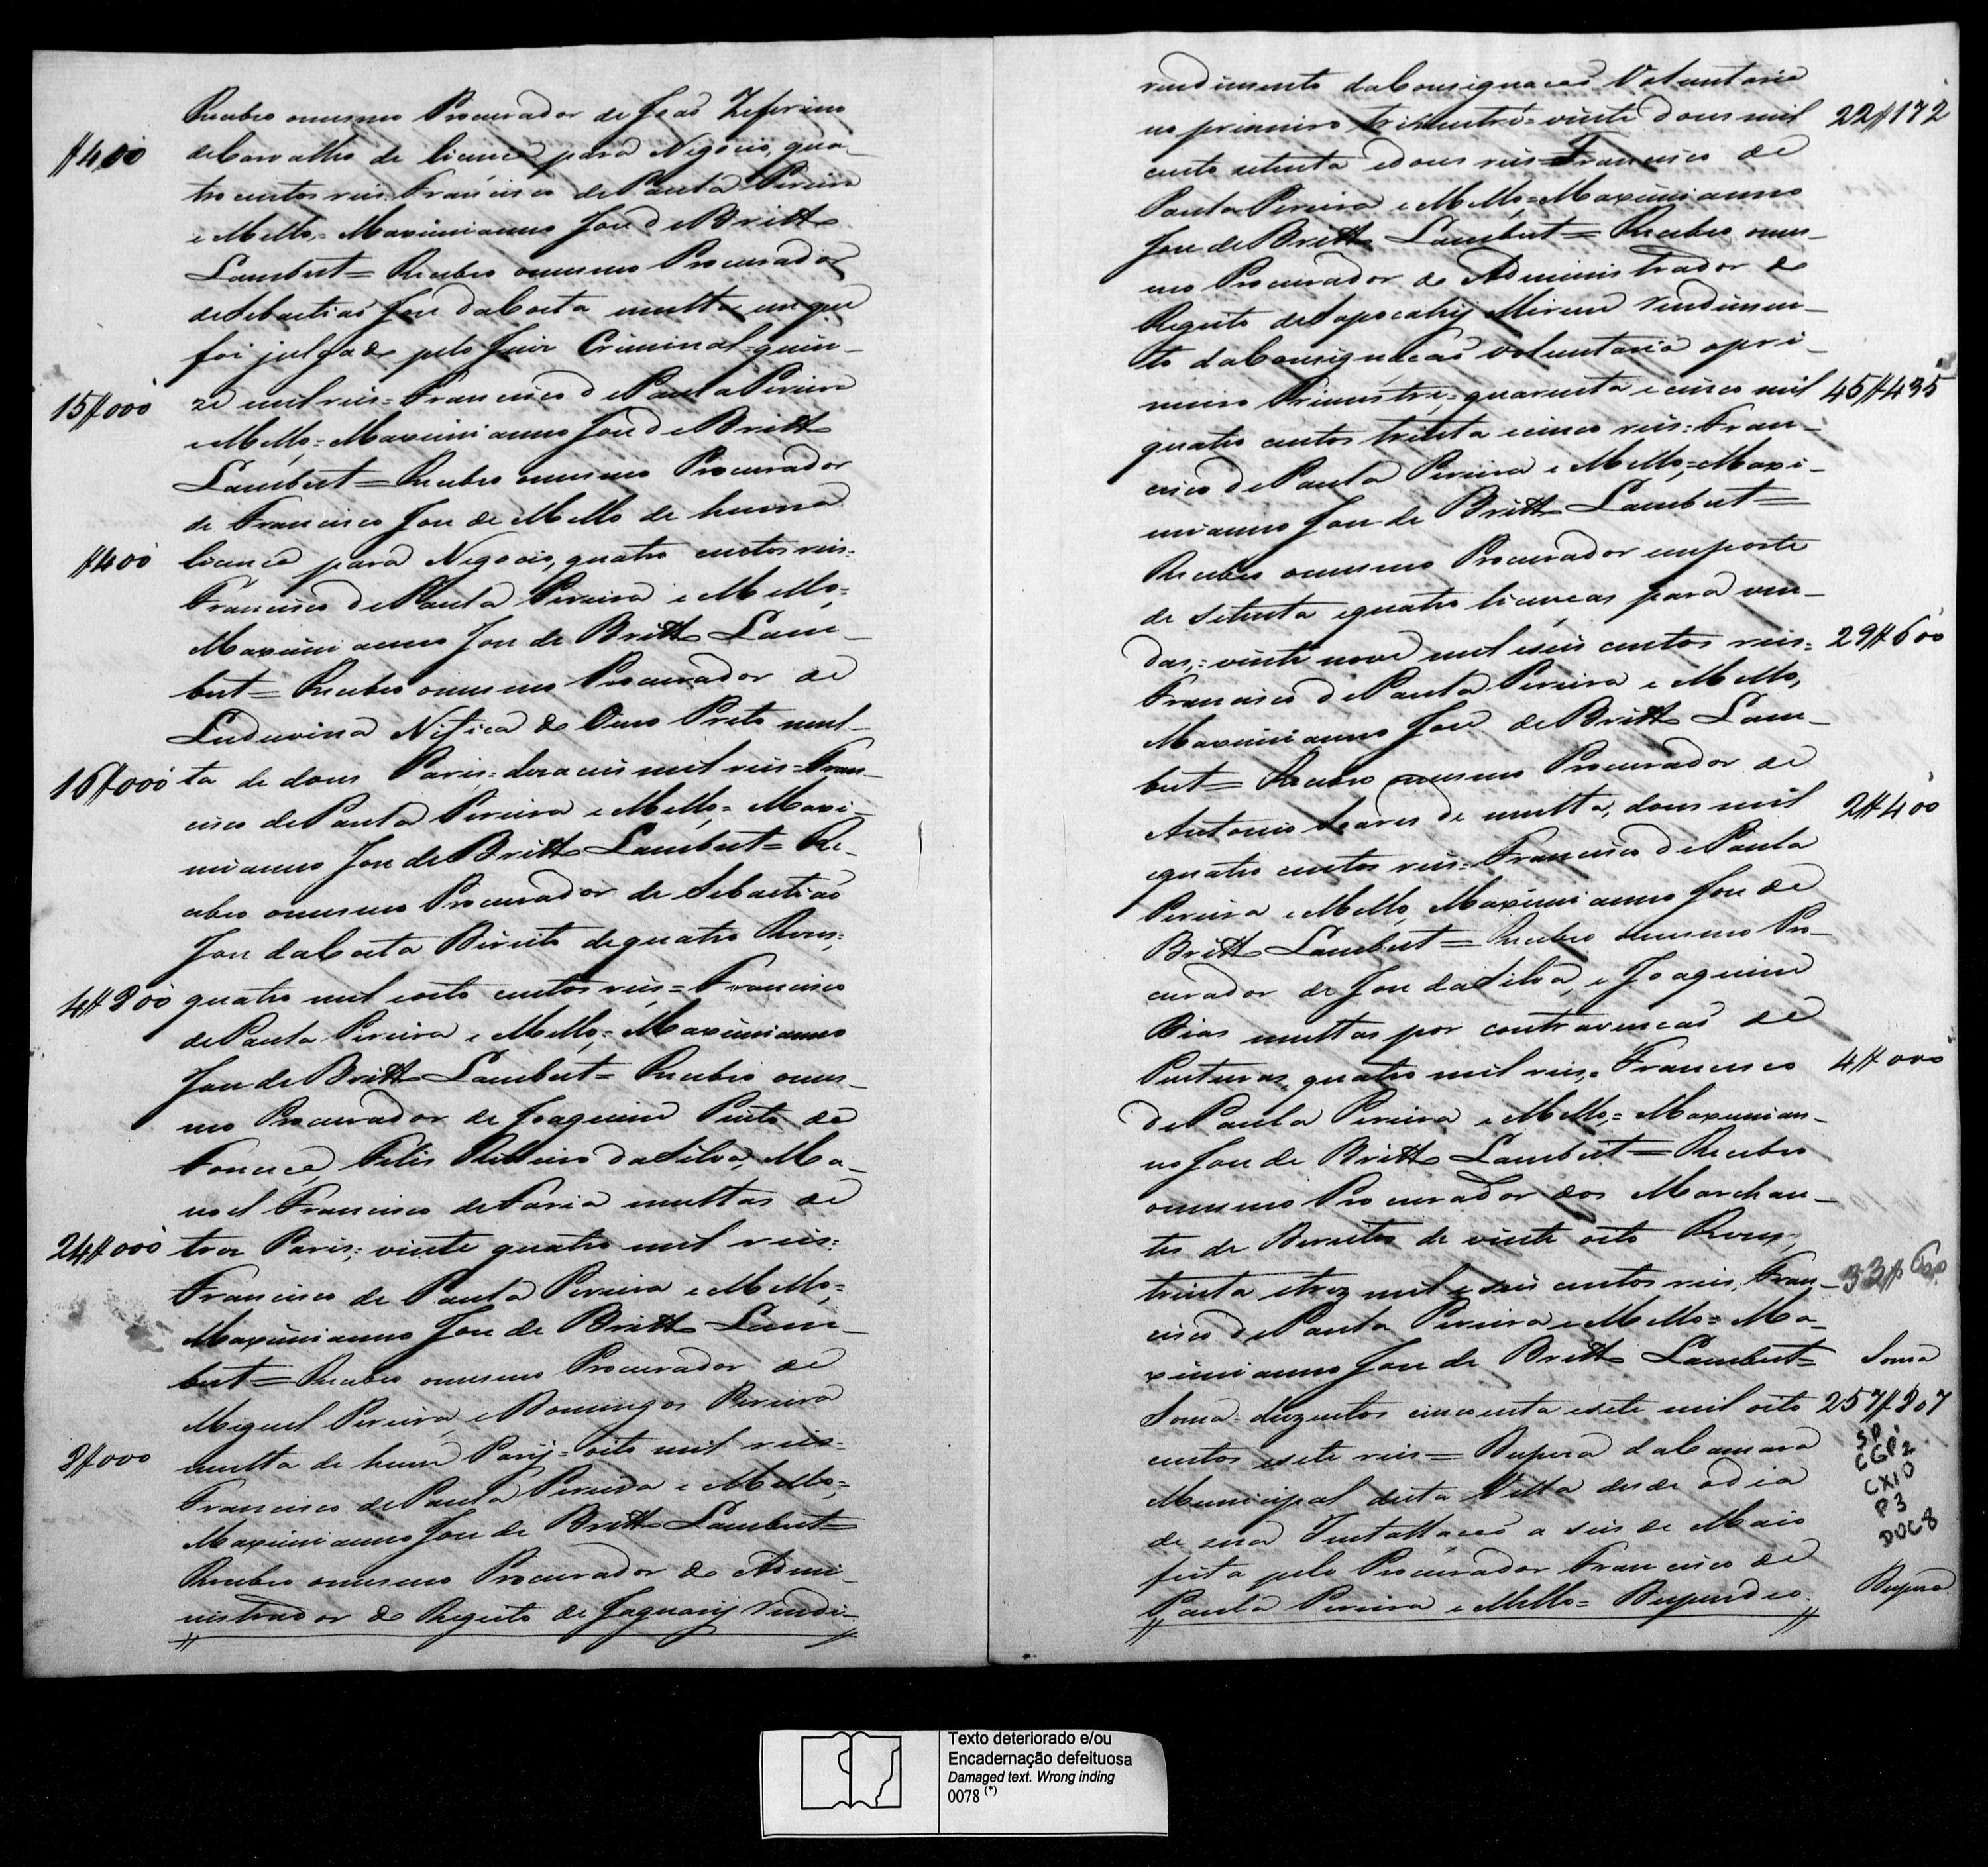 Recebeo omesmo Procurador de Joaõ Zeferino
#400 deCarvalho de licença para Negocio, qua-
trocentos reis. Francisco dePaula Pereira
e Mello,= Maximianno José deBritto
Lambert= Recebeo omesmo Procurador
deSebastiaõ José daCosta multa em que
foi julgado pelo Juiz Criminal= quin-
15#000 ze mil reis= Francisco dePaula Pereira
e Mello,= Maximianno José deBritto
Lambert= Recebeo omesmo Procurador
de Francisco José de Mello de huma
#400 licença para Negocio, quatro centos reis=
Francisco dePaula Pereira e Mello,=
Maximianno José de Britto Lam-
bert= Recebeo omesmo Procurador de
Luduvina Nitica do Ouro Preto mul-
16#000 ta de dous Paris= dezaceis mil reis= Fran-
cisco dePaula Pereira e Mello,= Maxi-
mianno José deBritto Lambert= Re-
cebeo omesmo Procurador de Sebastiaõ
José daCosta Direito dequatro Rezes,
4#800 quatro mil eoito centos reis= Francisco
dePaula Pereira e Mello,= Maximianno
José deBritto Lambert= Recebeo omes-
mo Procurador de Joaquim Pinto da
Fonceca, Felis Ribeiro daSilva, Ma-
noel Francisco deFaria multas de
24#000 trez Paris; vinte quatro mil reis=
Francisco de Paula Pereira e Mello,=
Maximianno José de Britto Lam-
bert= Recebeo omesmo Procurador de
Miguel Pereira, e Domingos Pereira
8#000 multa de hum Parij= oito mil reis=
Francisco dePaula Pereira e Mello,=
Maximianno José de Britto Lambert=
Recebeo omesmo Procurador do Admi-
nistrador do Registo de Jaguarij rendi-
rendimento daConsignacaõ Voluntaria
no primeiro trimestre= vinte dous mil 22#172
cento setenta edous reis= Francisco de
Paula Pereira e Mello,= Maximianno
José deBritto Lambert= Recebeo omes-
mo Procurador do Administrador do
Registo deSapocahy Merim rendimen-
to daConsignacaõ voluntaria opri-
meiro Trimestre,= quarenta e cinco mil 45#435
quatro centos trinta ecinco reis= Fran-
cisco dePaula Pereira e Mello,= Maxi-
mianno José de Britto Lambert=
Recebeo omesmo Procurador emporte
de setenta equatro licencas para ven-
das,= vinte nove mil eseis centos reis= 29#600
Francisco dePaula Pereira e Mello,
Maximianno José deBritto Lam-
bert= Recebeo omesmo Procurador de
Antonio Soares de multa, dous mil 2#400
equatro centos reis= Francisco dePaula
Pereira e Mello, Maximianno José de
Britto Lambert= Recebeo omesmo Pro-
curador de José daSilva, e Joaquim
Dias multas por contravencaõ de
Posturas, quatro mil reis,= Francisco 4#000
dePaula Pereira e Mello,= Maximian-
no José de Britto Lambert= Recebeo
omesmo Procurador dos Marchan-
tes de Dereitos de vinte oito Rezes,
trinta etrez mil e seis centos reis, Fran- 33#600
cisco dePaula Pereira e Mello= Ma-
ximianno José de Britto Lambert= Soma
Soma= duzentos cincoenta esete mil oito 257#807
centos esete reis= Despeza daCamara
Municipal desta Villa desde odia
de sua Installacaõ a seis de Maio
feita pelo Procurador Francisco de
Paula Pereira e Mello= Despendeo Despeza
SP
CGP2
CX10
P3
DOC8
Texto deteriorado e/ou
Encadernação defeituosa
Damaged text. Wrong inding
0078 (*)